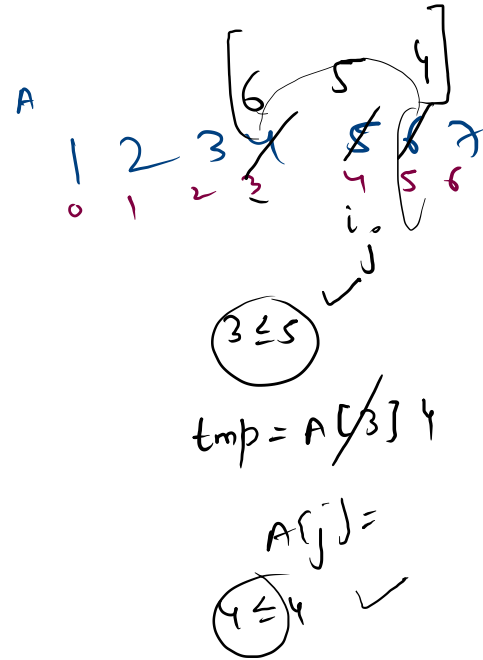 [ 6 5 4 ]
A
1 2 3 4 5 6 7
0 1 2 3 4 5 6
i j
3 ≤ 5 ✓
tmp = A[3] 4
A[j] =
4 ≤ 4 ✓